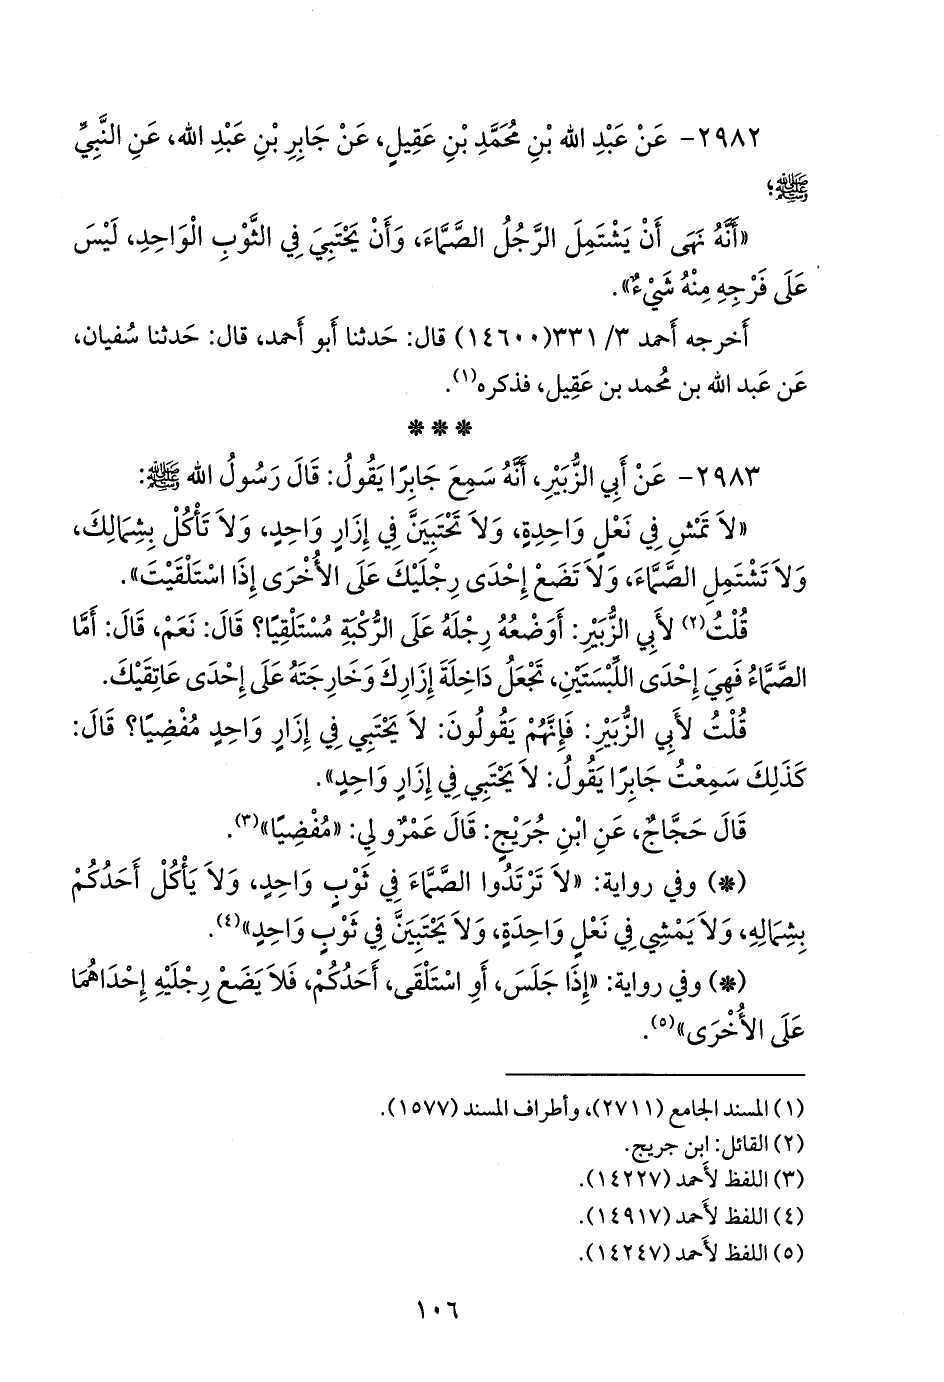 ٢٩٨٢- عَنْ عَبْدِ الله بْنِ مُحَمَّدِ بْنِ عَقِيلٍ، عَنْ جَابِرِ بْنِ عَبْدِ الله، عَنِ النَّبِيِّ
ﷺ؛
«أَنَّهُ نَهَى أَنْ يَشْتَمِلَ الرَّجُلُ الصَّمَّاءَ، وَأَنْ يَحْتَبِيَ فِي الثَّوْبِ الْوَاحِدِ، لَيْسَ
عَلَى فَرْجِهِ مِنْهُ شَيْءٌ».
أَخرجه أَحمد ٣/ ٣٣١(١٤٦٠٠) قال: حَدثنا أَبو أَحمد، قال: حَدثنا سُفيان،
عَن عَبد الله بن مُحمد بن عَقِيل، فذكره(١).
* * *
٢٩٨٣- عَنْ أَبِي الزُّبَيْرِ، أَنَّهُ سَمِعَ جَابِرًا يَقُولُ: قَالَ رَسُولُ الله ﷺ:
«لاَ تَمْشِ فِي نَعْلٍ وَاحِدَةٍ، وَلاَ تَحْتَبِيَنَّ فِي إِزَارٍ وَاحِدٍ، وَلاَ تَأْكُلْ بِشِمَالِكَ،
وَلاَ تَشْتَمِلِ الصَّمَّاءَ، وَلاَ تَضَعْ إِحْدَى رِجْلَيْكَ عَلَى الأُخْرَى إِذَا اسْتَلْقَيْتَ».
قُلْتُ(٢) لأَبِي الزُّبَيْرِ: أَوَضْعُهُ رِجْلَهُ عَلَى الرُّكْبَةِ مُسْتَلْقِيًا؟ قَالَ: نَعَمْ، قَالَ: أَمَّا
الصَّمَّاءُ فَهِيَ إِحْدَى اللِّبْسَتَيْنِ، تَجْعَلُ دَاخِلَةَ إِزَارِكَ وَخَارِجَتَهُ عَلَى إِحْدَى عَاتِقَيْكَ.
قُلْتُ لأَبِي الزُّبَيْرِ: فَإِنَّهُمْ يَقُولُونَ: لاَ يَحْتَبِي فِي إِزَارٍ وَاحِدٍ مُفْضِيًا؟ قَالَ:
كَذَلِكَ سَمِعْتُ جَابِرًا يَقُولُ: لاَ يَحْتَبِي فِي إِزَارٍ وَاحِدٍ».
قَالَ حَجَّاجٌ، عَنِ ابْنِ جُرَيْجٍ: قَالَ عَمْرٌو لِي: «مُفْضِيًا»(٣).
(*) وفي رواية: «لاَ تَرْتَدُوا الصَّمَّاءَ فِي ثَوْبٍ وَاحِدٍ، وَلاَ يَأْكُلْ أَحَدُكُمْ
بِشِمَالِهِ، وَلاَ يَمْشِي فِي نَعْلٍ وَاحِدَةٍ، وَلاَ يَحْتَبِيَنَّ فِي ثَوْبٍ وَاحِدٍ»(٤).
(*) وفي رواية: «إِذَا جَلَسَ، أَوِ اسْتَلْقَى، أَحَدُكُمْ، فَلاَ يَضَعْ رِجْلَيْهِ إِحْدَاهُمَا
عَلَى الأُخْرَى»(٥).
(١) المسند الجامع (٢٧١١)، وأطراف المسند (١٥٧٧).
(٢) القائل: ابن جريج.
(٣) اللفظ لأَحمد (١٤٢٢٧).
(٤) اللفظ لأَحمد (١٤٩١٧).
(٥) اللفظ لأَحمد (١٤٢٤٧).
١٠٦